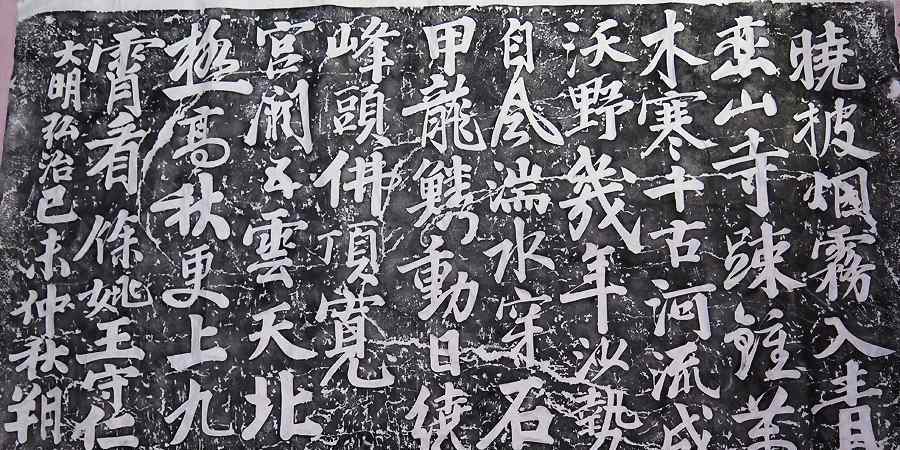 曉披烟霧入青
巒山寺踈鐘萬
木寒千古河流成
沃野幾年沙勢
自風湍水穿石
甲龍鱗動日繞
峰頭佛頂寬
宮闕五雲天北
極高秋更上九
霄看 餘姚王守仁
大明弘治己未仲秋朔